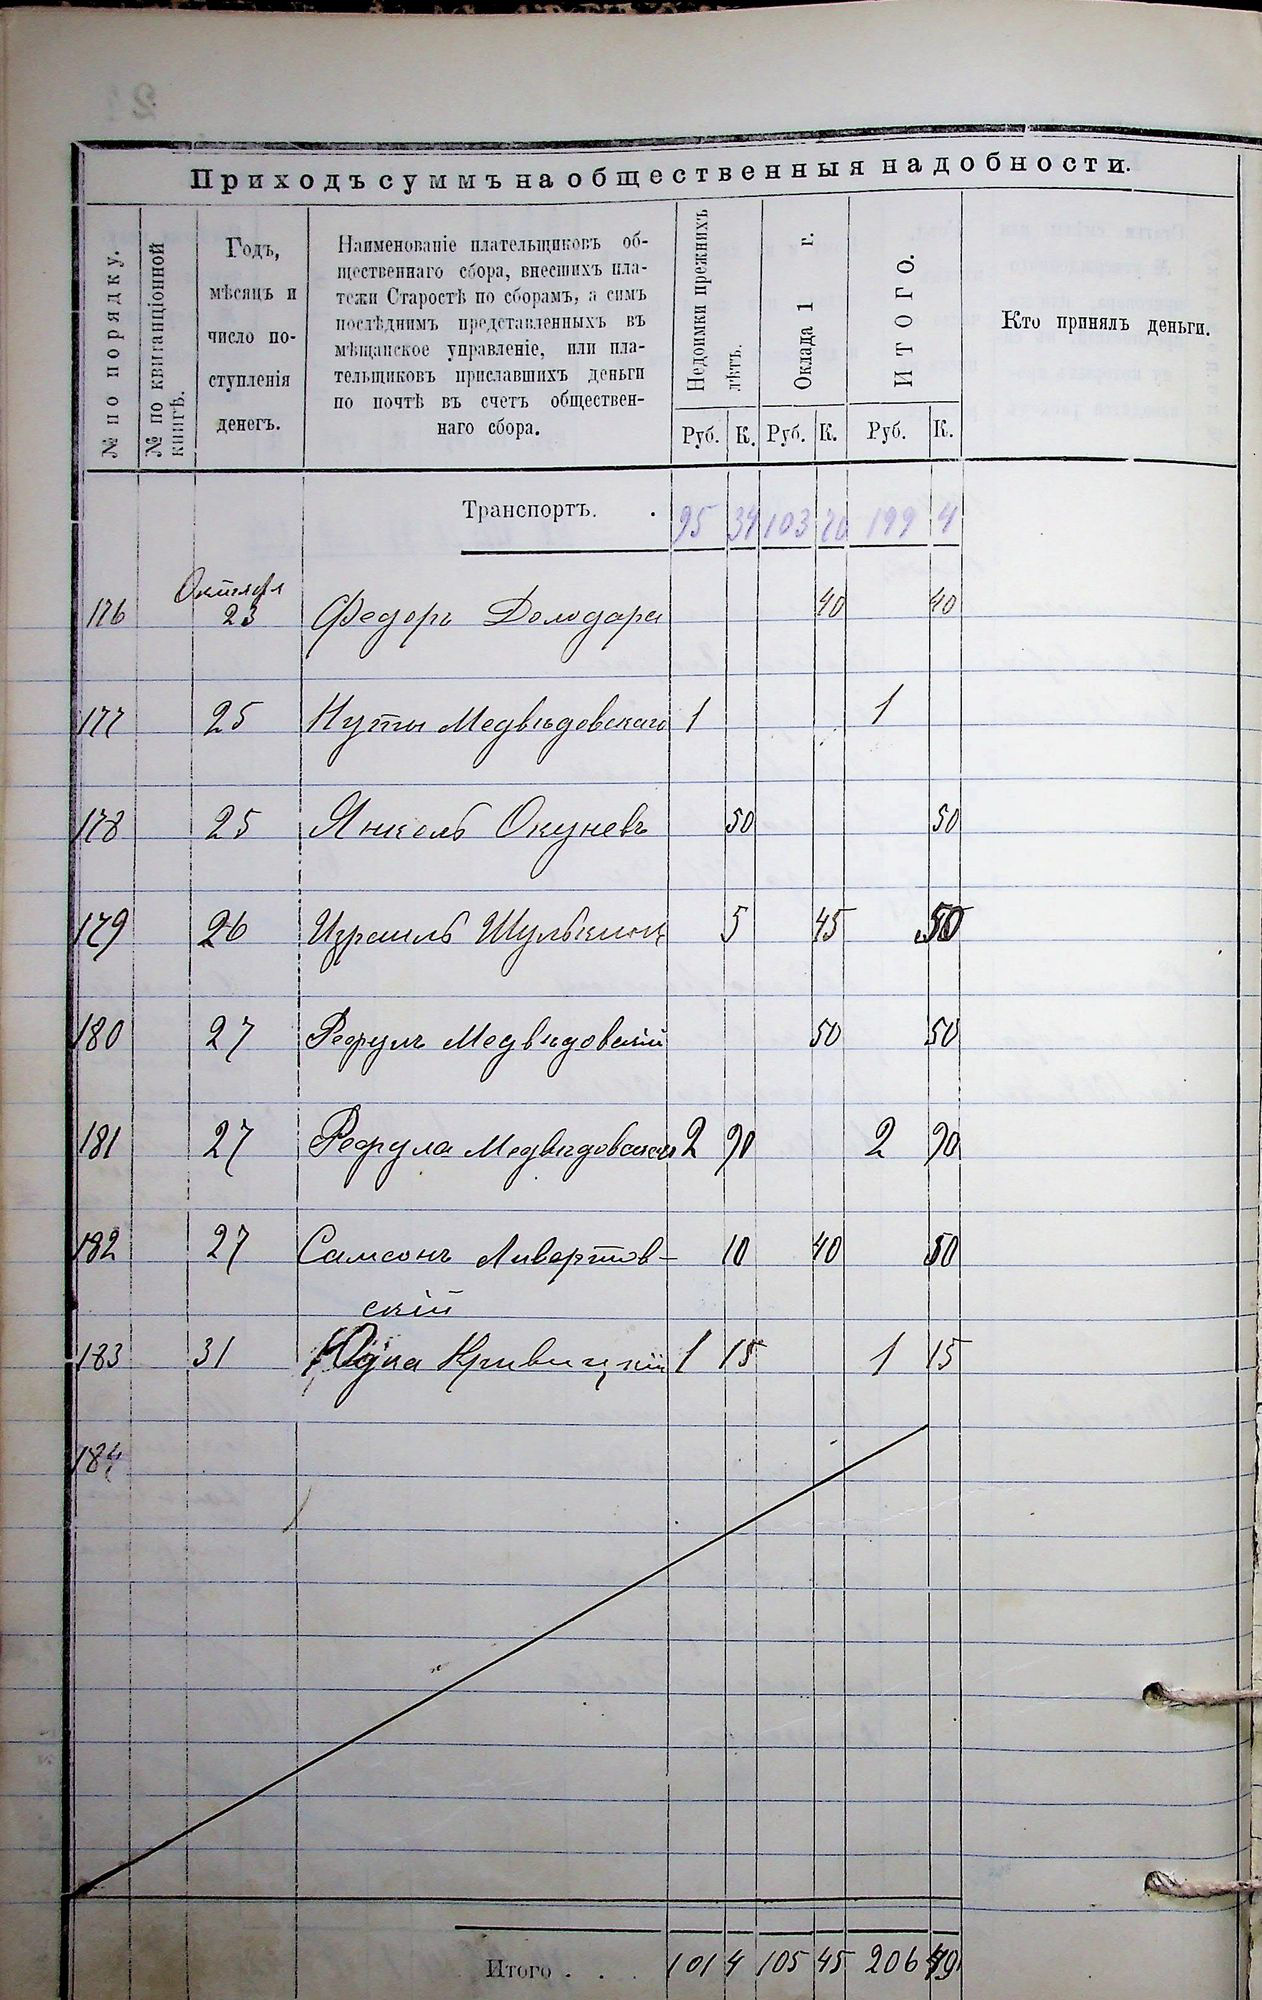 Приходъ суммъ на общественныя надобности.
№ по порядку.
№ по квитанціонной
книгѣ.
Годъ,
мѣсяцъ и
число по-
ступленія
денегъ.
Наименованіе плательщиковъ об-
щественнаго сбора, внесшихъ пла-
тежи Старостѣ по сборамъ, а симъ
послѣднимъ представленныхъ въ
мѣщанское управленіе, или пла-
тельщиковъ приславшихъ деньги
по почтѣ въ счетъ обществен-
наго сбора.
Недоимки прежнихъ
лѣтъ.
Оклада 1 г.
ИТОГО.
Кто принялъ деньги.
Руб. К. Руб. К. Руб. К.
Транспортъ. . 95 34 103 70 199 4
Октября
176 23 Федоръ 40 40
177 25 Нуты Медвѣдовскаго 1 1
178 25 Янкель Окуневъ 50 50
179 26 Израиль Шулькинъ 5 45 50
180 27 Рефулъ Медвѣдовскій 50 50
181 27 Рефула Медвѣдовскаго 2 90 2 90
182 27 Самсонъ Ливертов-
скій 10 40 50
183 31 Юдка Кривицкій 1 15 1 15
184
Итого . . . 101 4 105 45 206 49